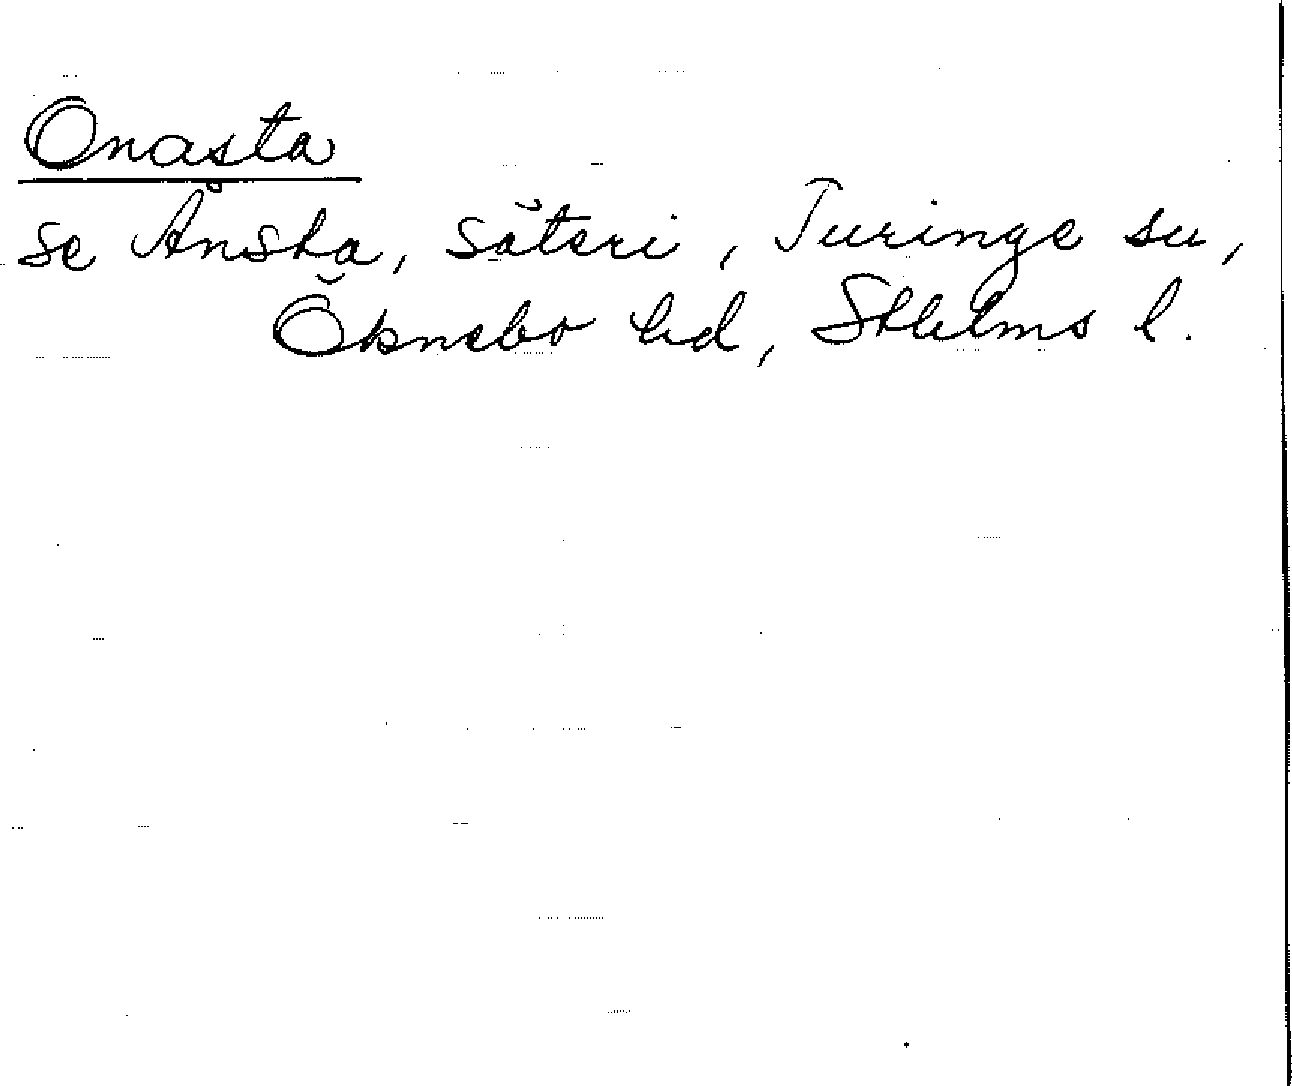 Onasta
se Ånsta, säteri, Turinge sn,
Öknebo hd, Sthlms l.